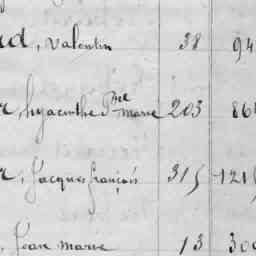 rd, Valentin 38 94
r, hyacinthe Pre marie 203 864
r, Jacques françois 315 1215
, Jean marie 13 300